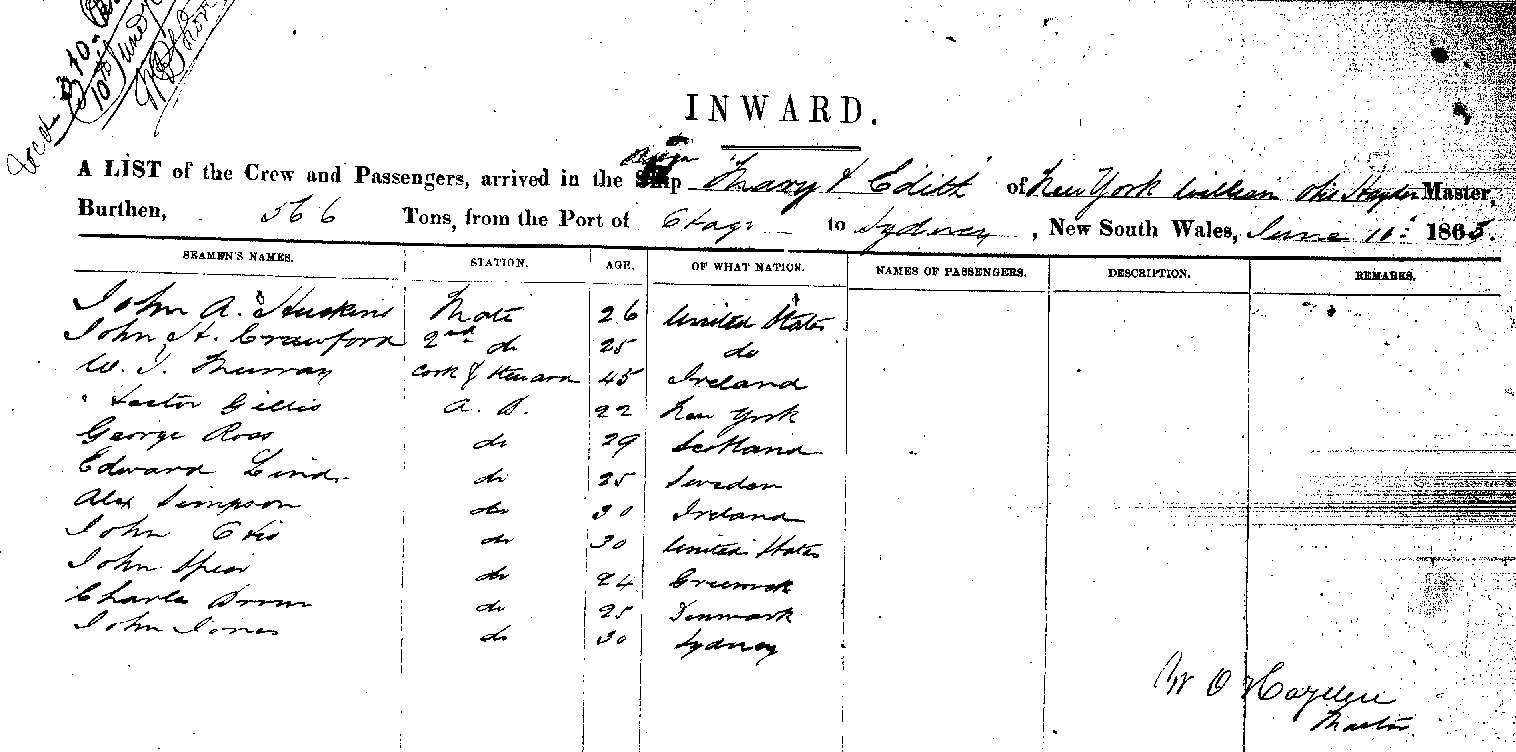 10th June
INWARD.
A LIST of the Crew and Passengers, arrived in the Ship Mary & Edith of New York William Otis Master,
Burthen, 566 Tons, from the Port of Otago to Sydney, New South Wales, June 10: 1865.
SEAMEN'S NAMES. STATION. AGE. OF WHAT NATION. NAMES OF PASSENGERS. DESCRIPTION. REMARKS.
John A. Huckins Mate 26 United States
John H. Crawford 2nd do 25 do
W. J. Murray Cook & Steward 45 Ireland
Hector Gillis A. B. 22 New York
George Ross do 29 Scotland
Edward Lind do 25 Sweden
Alex Simpson do 30 Ireland
John Otis do 30 United States
John Speir do 24 Greenock
Charles Brown do 25 Denmark
John Jones do 30 Sydney
W O
Master